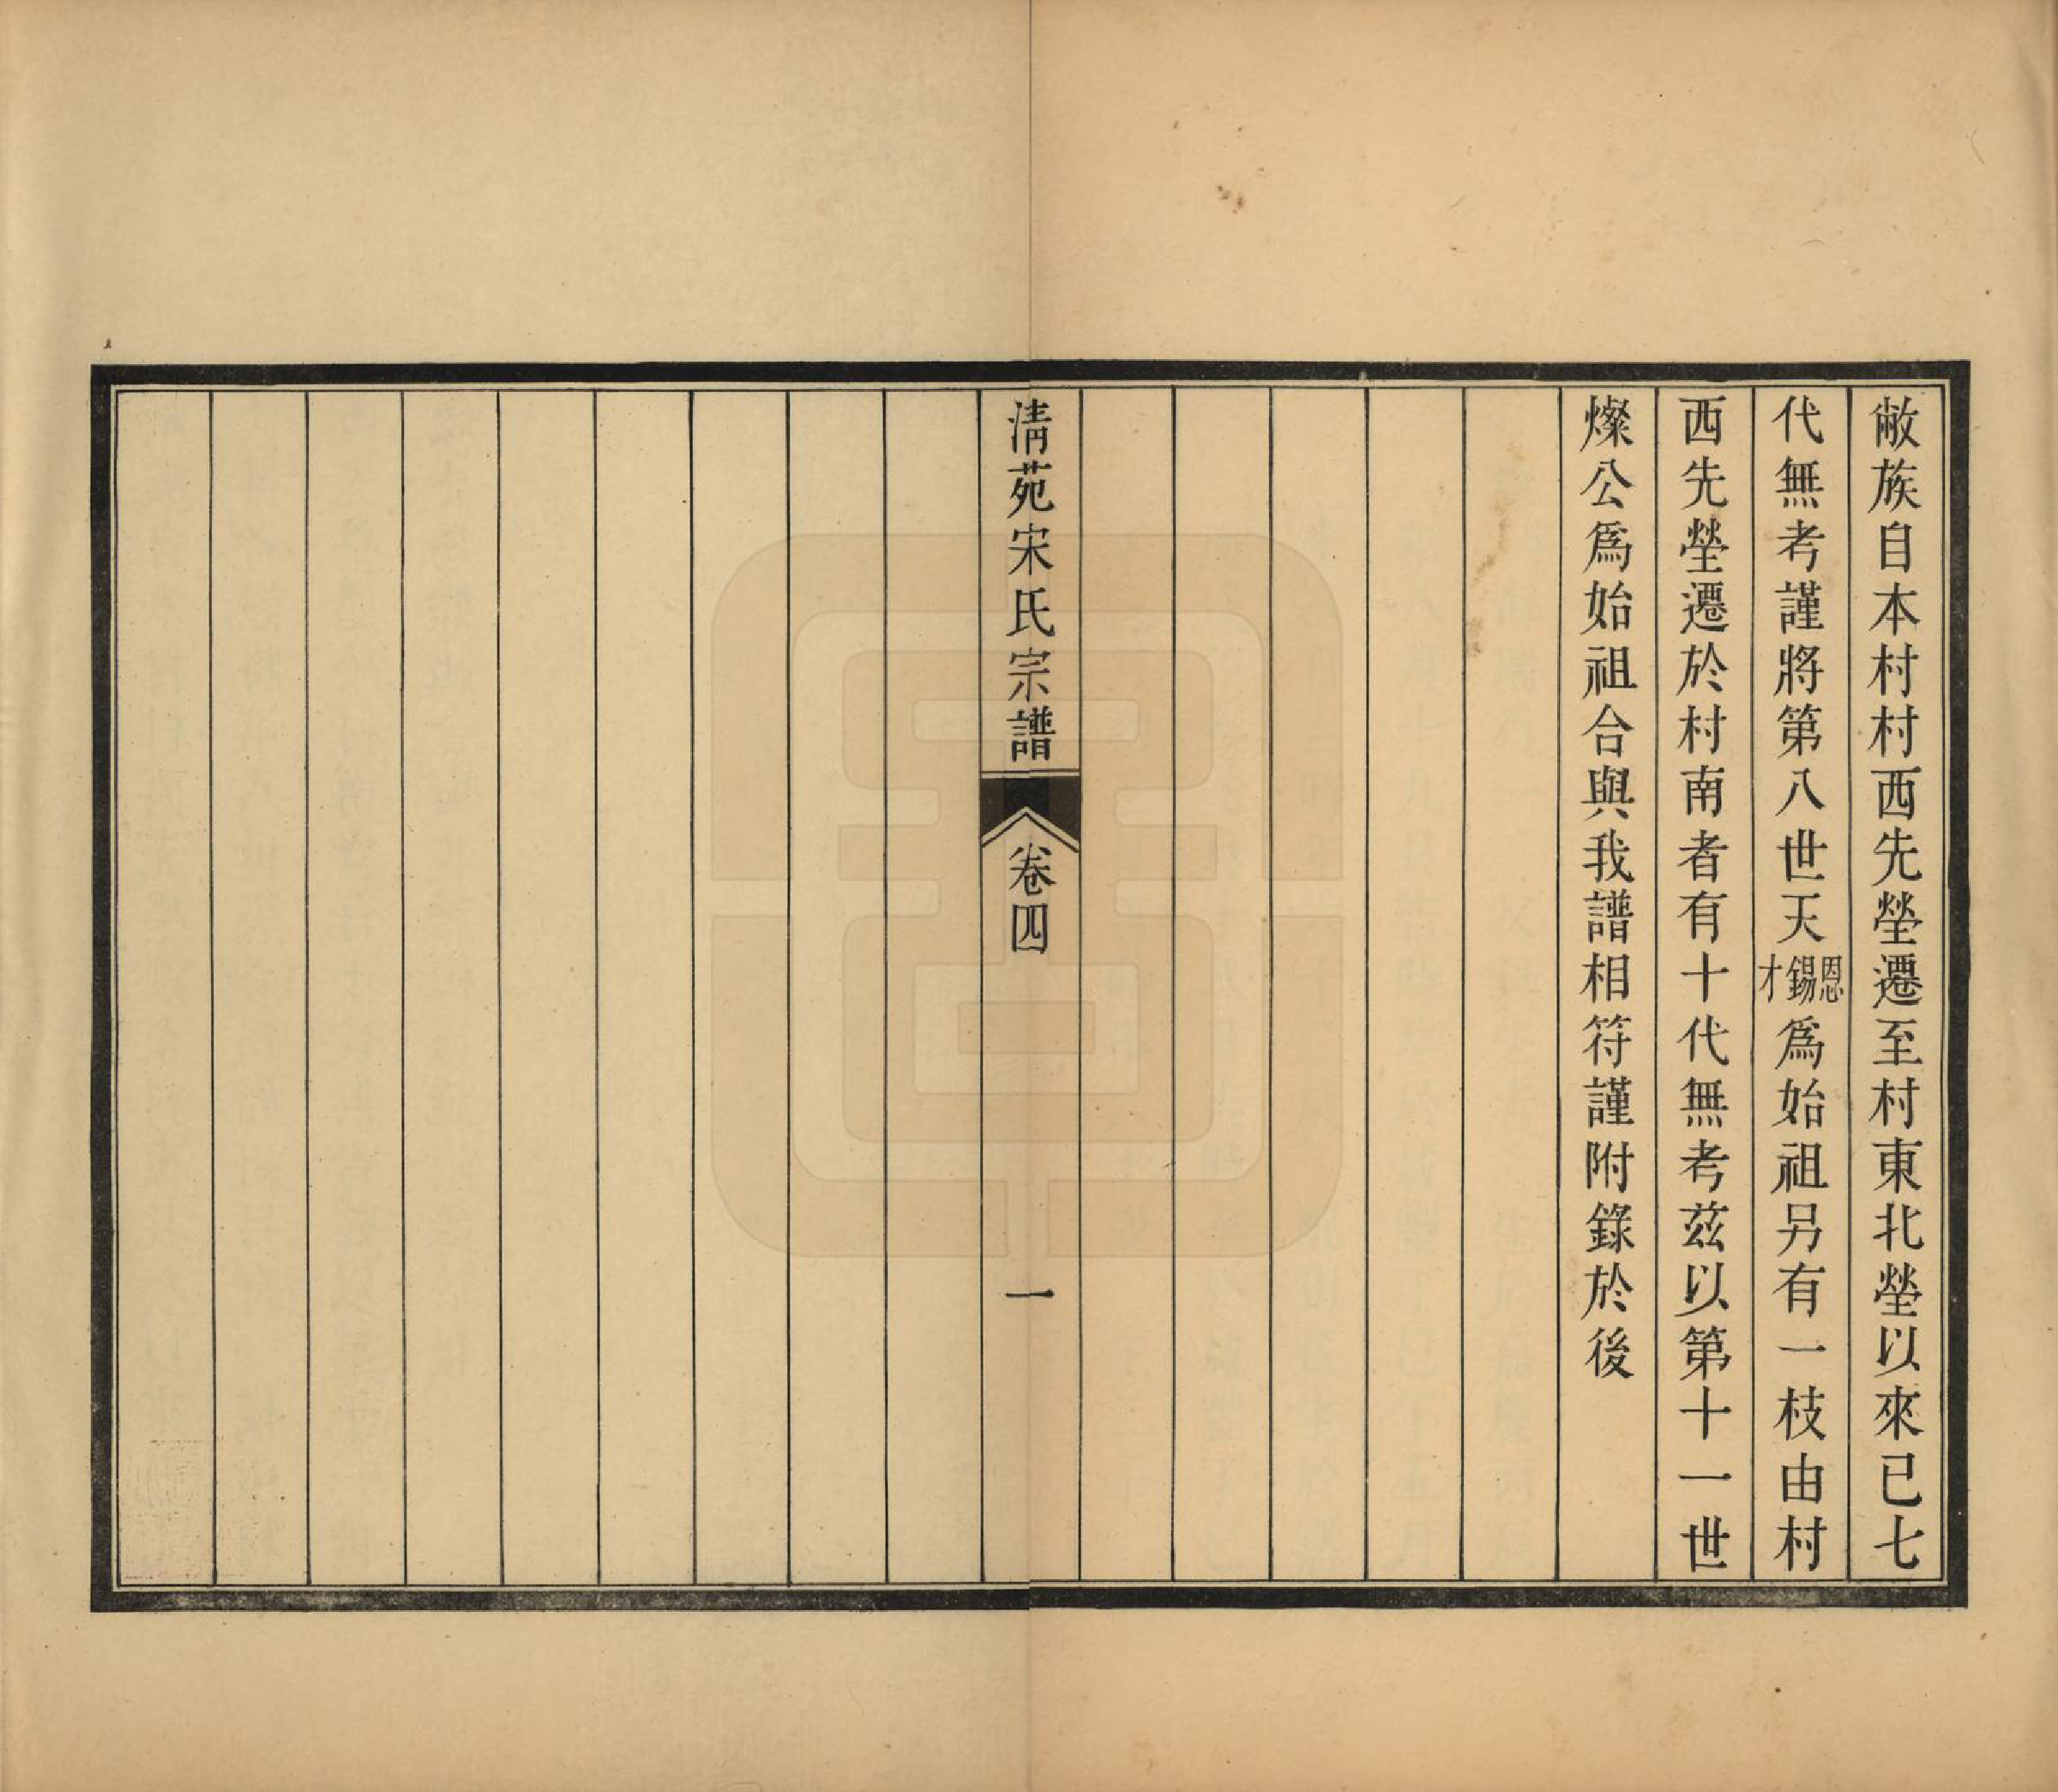 敝族自本村村西先塋遷至村東北塋以來已七
代無考謹將第八世天恩錫才爲始祖另有一枝由村
西先塋遷於村南者有十代無考茲以第十一世
燦公爲始祖合與我譜相符謹附錄於後
清苑宋氏宗譜
卷四
一